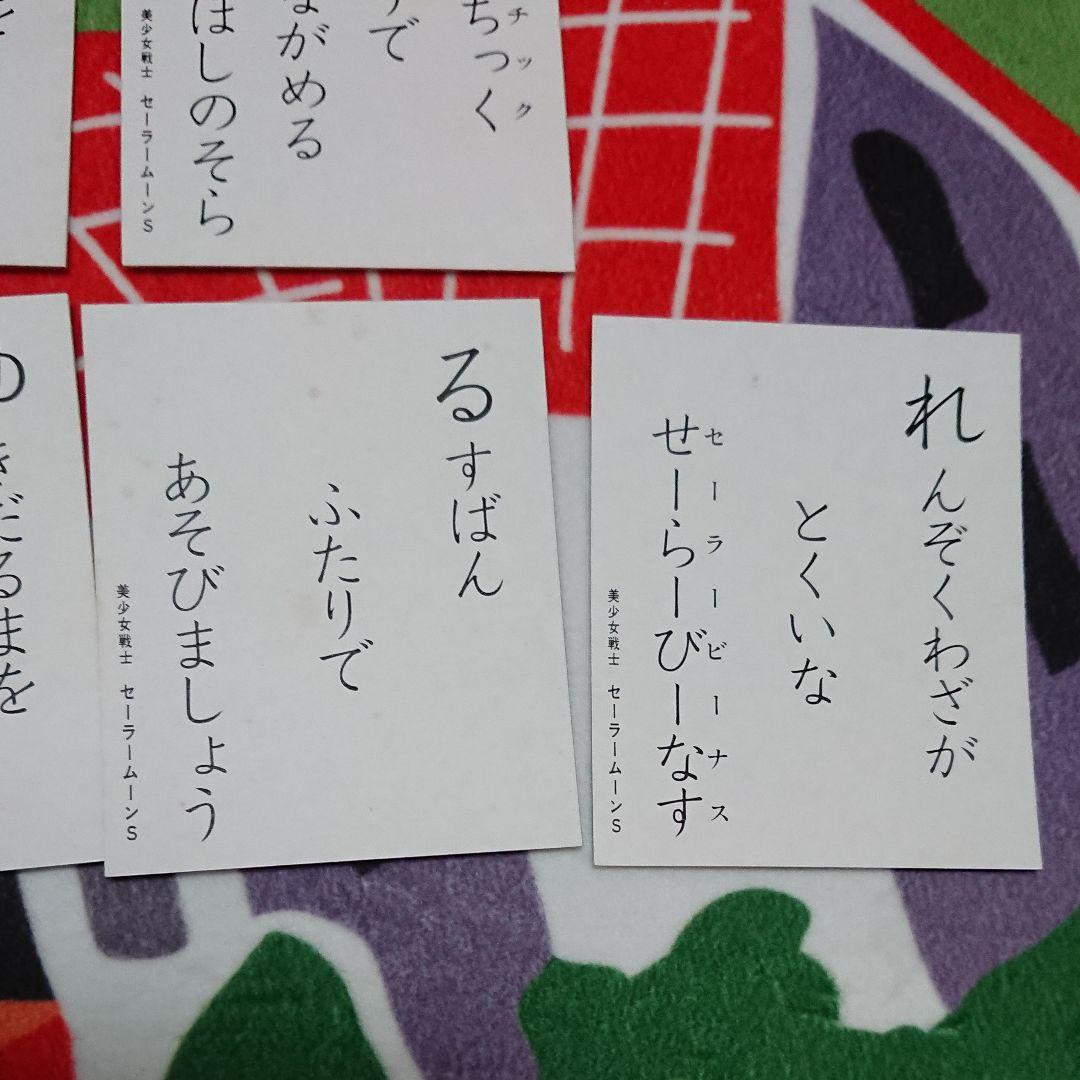 ちっく
チック
で
ながめる
ほしのそら
美少女戦士 セーラームーンS
きだるまを
るすばん
ふたりで
あそびましょう
美少女戦士 セーラームーンS
れんぞくわざが
とくいな
せーらーびーなす
セーラービーナス
美少女戦士 セーラームーンS